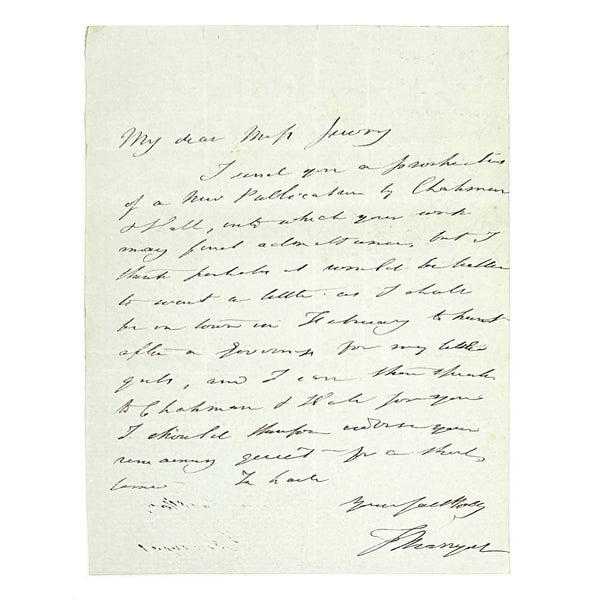 My dear Miss Jewry
I send you a prospectus
of a New Publication by Chapman
& Hall, into which your work
may find admittance, but I
think perhaps it would be better
to wait a little as I shall
be in town in February to hunt
after a Governess for my little
girls, and I can then speak
to Chapman & Hall for you
I should therefore advise your
remaining quiet for a short
time In haste
Yours faithfully
F Marryat